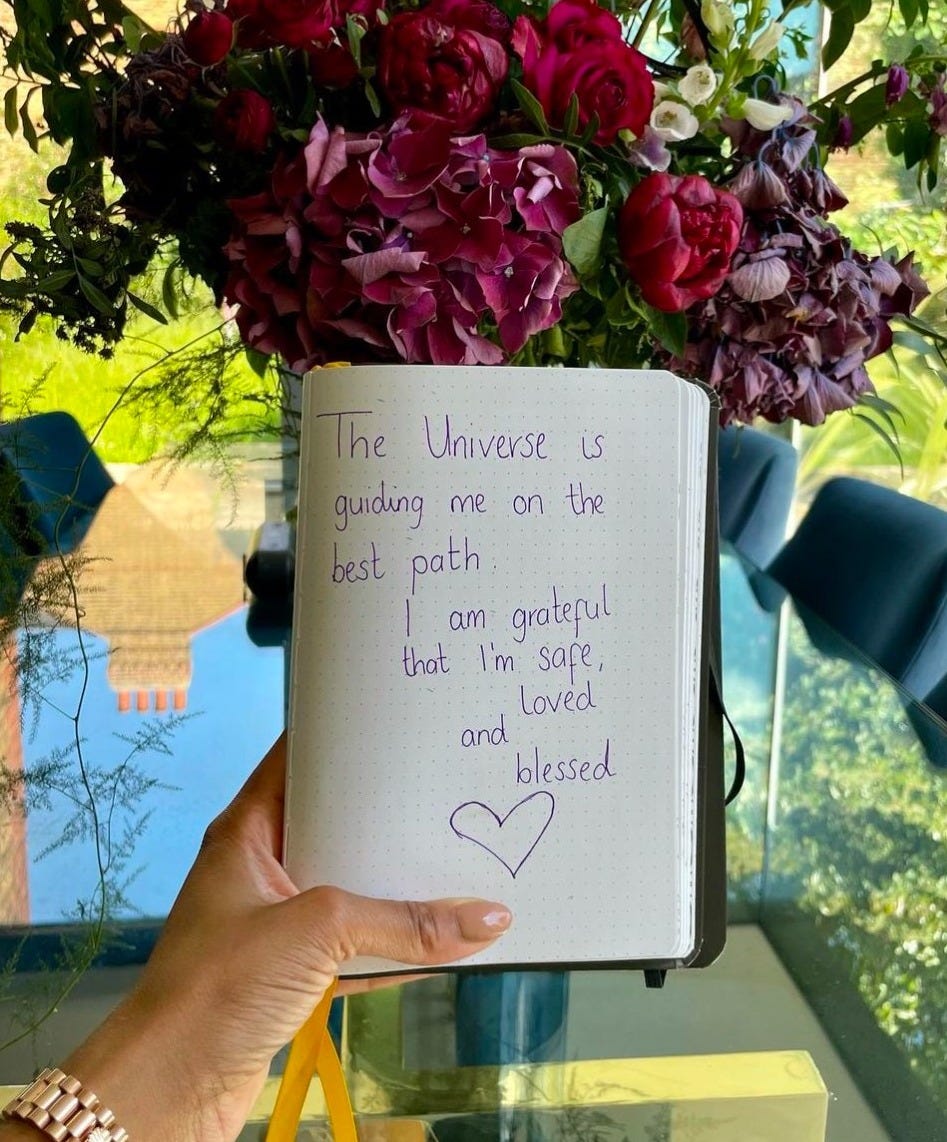 The Universe is
guiding me on the
best path.
I am grateful
that I'm safe,
loved
and
blessed